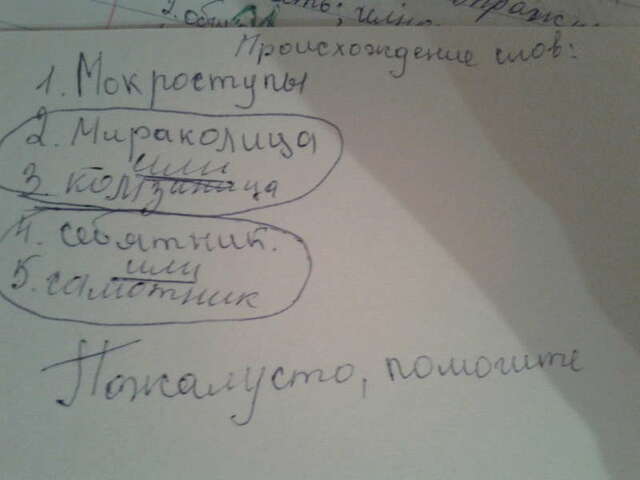 Происхождение слов:
1. Мокроступы
2. Мираколица
или
3. колзиница
4. себятник.
или
5. самотник
Пожалусто, помогите